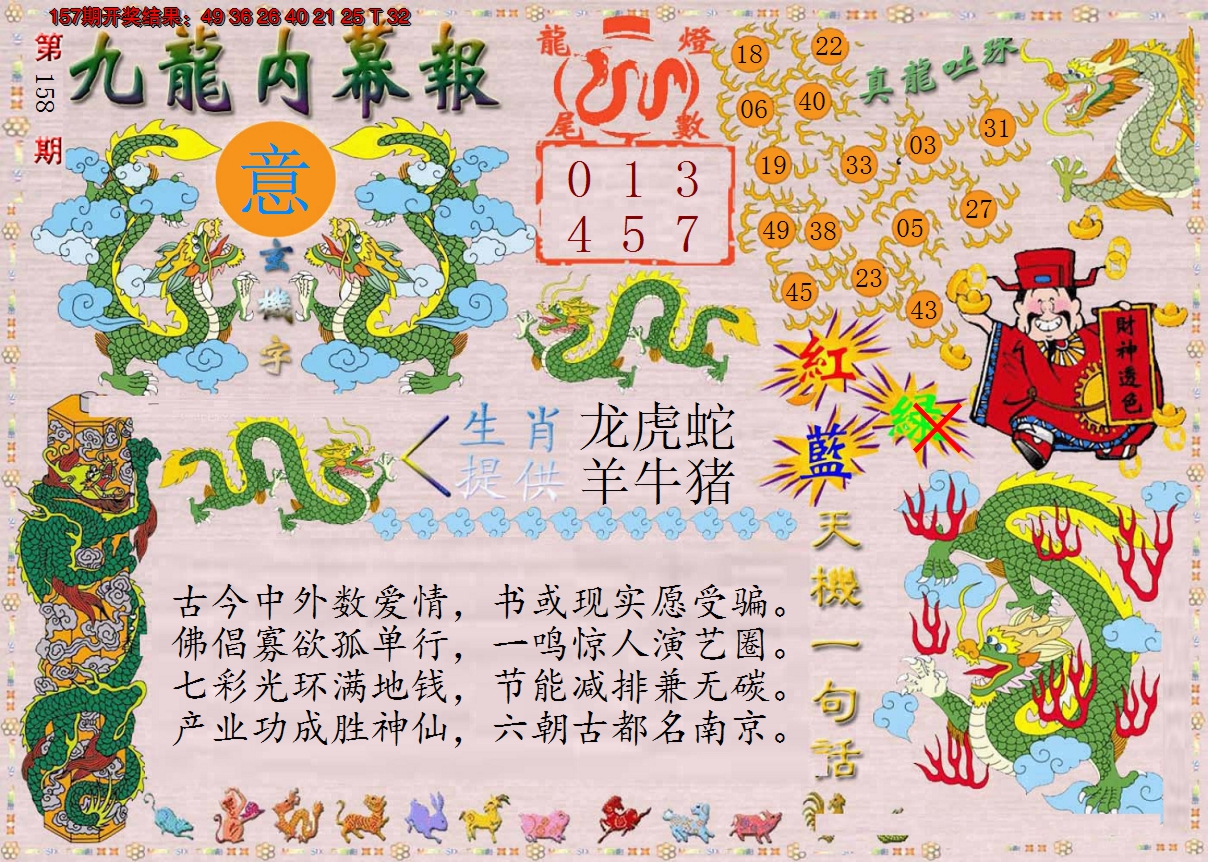 157期开奖结果：49 36 26 40 21 25 T 32
第158期
九龍内幕報
意
玄機字
龍燈
尾數
0 1 3
4 5 7
真龍吐珠
18 22
06 40
19 33 03 31
49 38 05 27
45 23 43
紅
綠
藍
財神透色
生肖
提供
龙虎蛇
羊牛猪
天機一句話
古今中外数爱情，书或现实愿受骗。
佛倡寡欲孤单行，一鸣惊人演艺圈。
七彩光环满地钱，节能减排兼无碳。
产业功成胜神仙，六朝古都名南京。